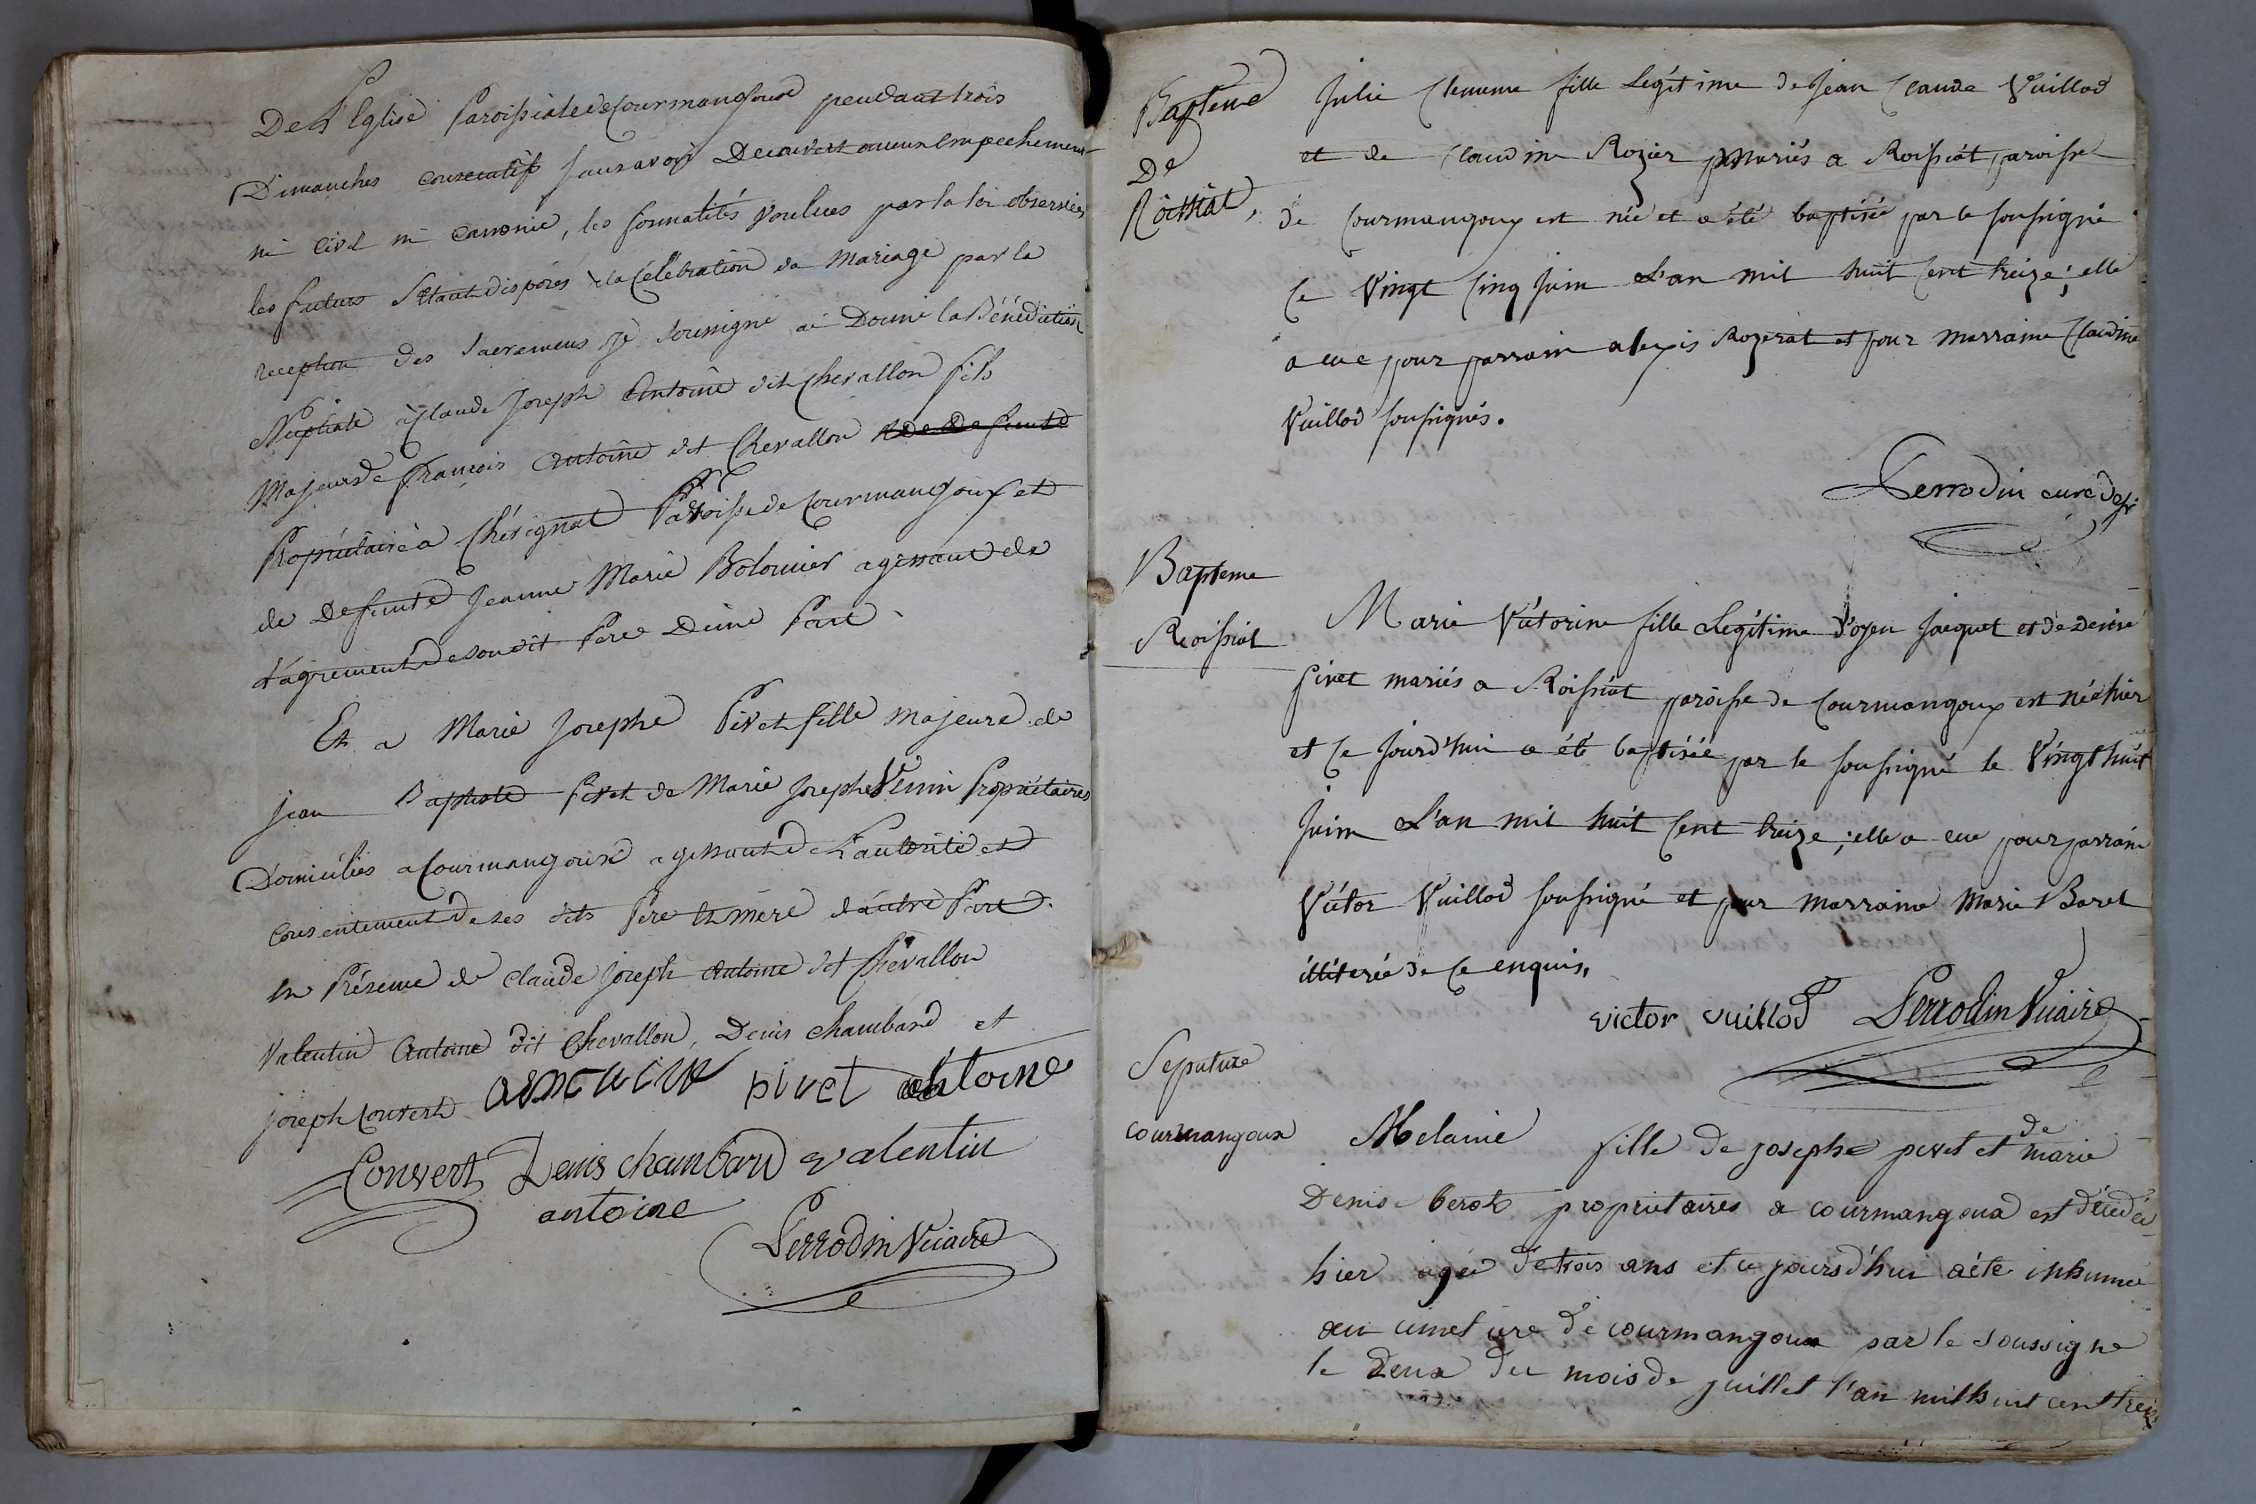 De L'Eglise Paroissiale de Courmangoux pendant trois
Dimanches consecutifs sans avoir Decouvert aucun Empechement
ni civil ni canonic, les formalités voulues par la loi observées
les futurs s'etant disposés a la Célébration du Mariage par la
reception des sacremens Je soussigné ai Donné la Bénédiction
Nuptiale à Claude Joseph Antoine dit Chevallon fils
Majeur de François Antoine dit Chevallon et de Defunte
Propriétaire à Chésignat Paroisse de Courmangoux et
de Defunte Jeanne Marie Bolomier agissant de
l'agrement de son dit Pere D'une Part.
Et a Marie Josephe Pivet fille majeure de
jean Baptiste Pivet de Marie Josephe Venin Propriétaires
Domiciliés a Courmangoux agissant de L'autorité et
consentement de ses dits Pere et mère d'autre Part.
En Présence de Claude Joseph Antoine dit Chevallon
Valentin Antoine dit Chevallon, Denis Chambard et
joseph Convert pivet antoine
Convert Denis chambard valentin
antoine
Perrodin Vicaire
Bapteme
De
Roissiat,
Julie Clemence fille Legitime de Jean Claude Vuillod
et de Claudine Rozier mariés a Roissiat paroisse
de Courmangoux est née et a été baptisée par le soussigné
Ce Vingt Cinq Juin L'an mil huit Cent treize; elle
a eue pour parrain alexis Rozerat et pour marraine Claudine
Vuillod soussignés.
Perrodin curé
Bapteme
Roissiat
Marie Victorine fille Legitime d'oyen Jacquet et de Denise
Pivet mariés a Roissiat paroisse de Courmangoux est née hier
et Ce Jourd'hui a été baptisée par le soussigné le Vingt huit
Juin L'an mil huit Cent treize; elle a eue pour parrain
Victor Vuillod soussigné et pour marraine Marie Barel
illiterée de Ce enquis.
victor vuillod Perrodin Vicaire
Sepulture
courmangoux
Melanie fille de josephe pivet et de marie
Denise berot propriétaires a courmangoux est décedée
hier agée de trois ans et ce jourd'hui a été inhumée
au cimetiere de courmangoux par le soussigné
le Deux du mois de juillet l'an mil huit cent treize